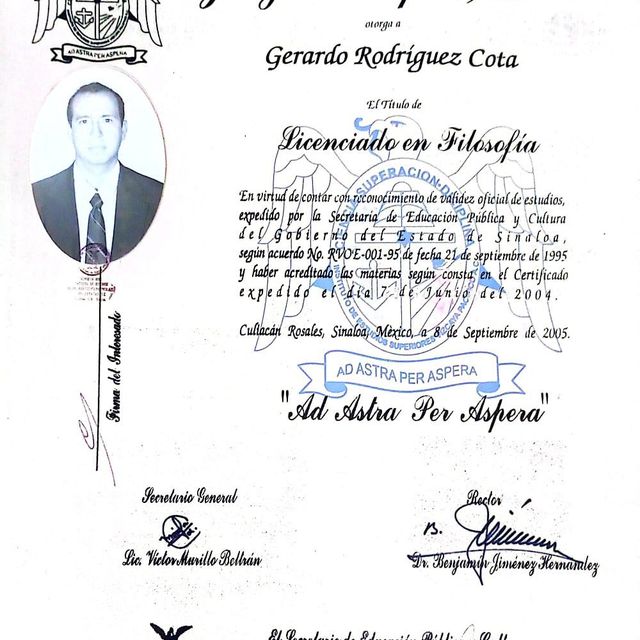 AD ASTRA PER ASPERA
otorga a
Gerardo Rodríguez Cota
El Título de
Licenciado en Filosofía
En virtud de contar con reconocimiento de validez oficial de estudios,
expedido por la Secretaría de Educación Pública y Cultura
del Gobierno del Estado de Sinaloa,
según acuerdo No. RVOE-001-95 de fecha 21 de septiembre de 1995
y haber acreditado las materias según consta en el Certificado
expedido el día 7 de Junio del 2004.
Culiacán Rosales, Sinaloa, México, a 8 de Septiembre de 2005.
AD ASTRA PER ASPERA
"Ad Astra Per Aspera"
Firma del Interesado
Secretario General
Rector
Lic. Víctor Murillo Beltrán
Dr. Benjamín Jiménez Hernández
El Secretario de Educación